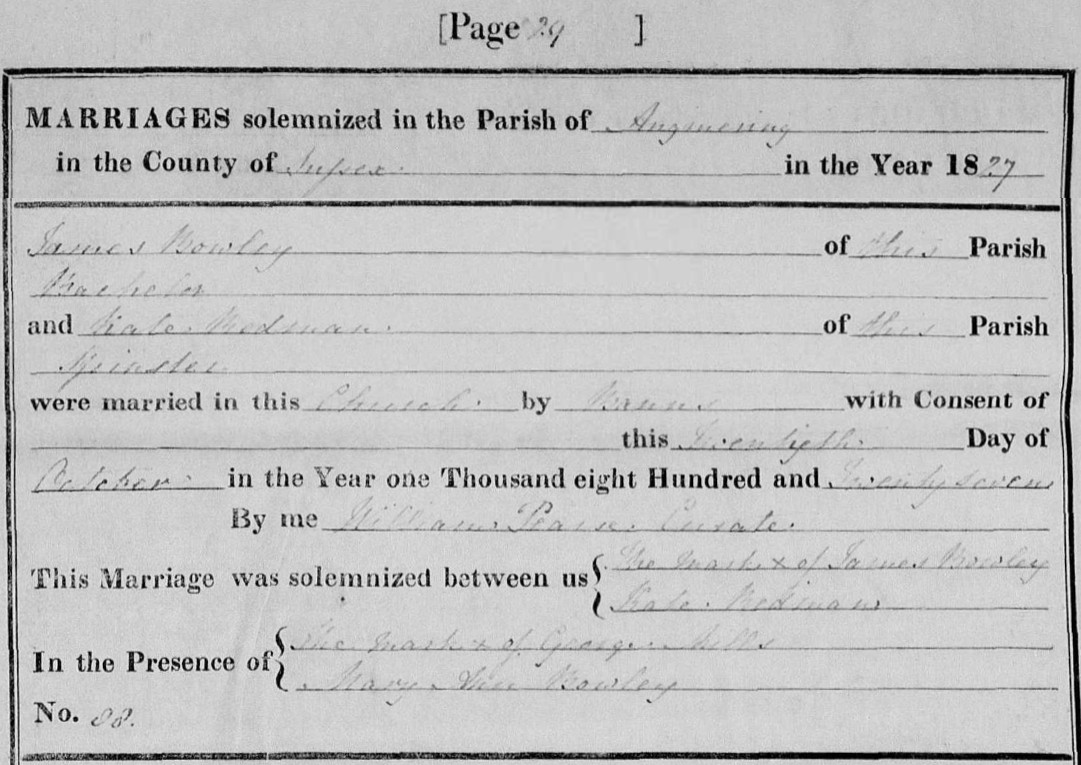 [Page 29 ]
MARRIAGES solemnized in the Parish of Angmering
in the County of Sussex in the Year 1827
James Bowley of this Parish
Bachelor
and Kate Redman of this Parish
Spinster
were married in this Church by Banns with Consent of
this Twentieth Day of
October in the Year one Thousand eight Hundred and Twenty seven
By me William Curate.
This Marriage was solemnized between us { The mark x of James Bowley
Kate Redman
In the Presence of { The mark x of George Mills
Mary Ann Bowley
No. 88.